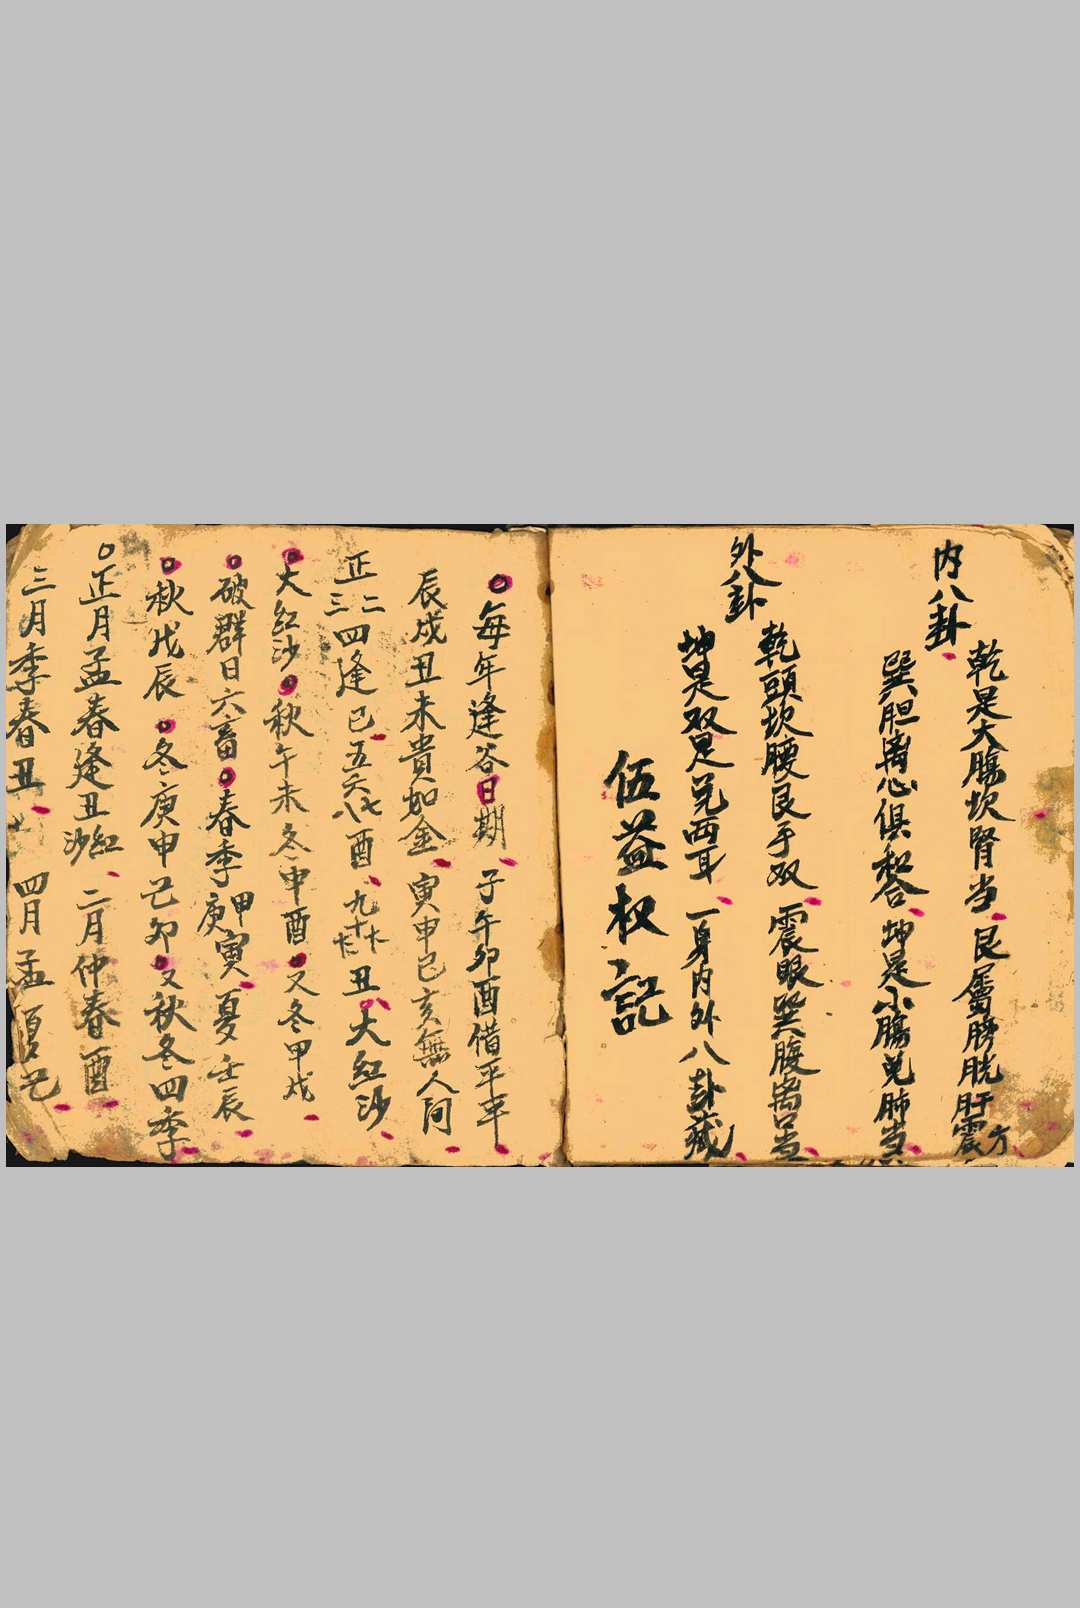 内八卦
乾是大腸坎腎当艮屬膀胱肝震方
巽胆离心俱和合坤是小腸兑肺当
外八卦
乾頭坎腰艮手双震眼巽腹离口当
坤是双足兑両耳一身内外八卦藏
伍益权記
每年逢谷日期 子午卯酉借平平
辰戌丑未貴如金 寅申巳亥無人问
正二三四逢巳五六七八酉九十十一十二丑大紅沙
大紅沙秋午未冬申酉又冬甲戌
破群日六畜春季甲庚寅夏壬辰
秋戊辰 冬庚申己卯又秋冬四季
正月孟春逢丑紅沙 二月仲春酉
三月季春丑 四月孟夏巳